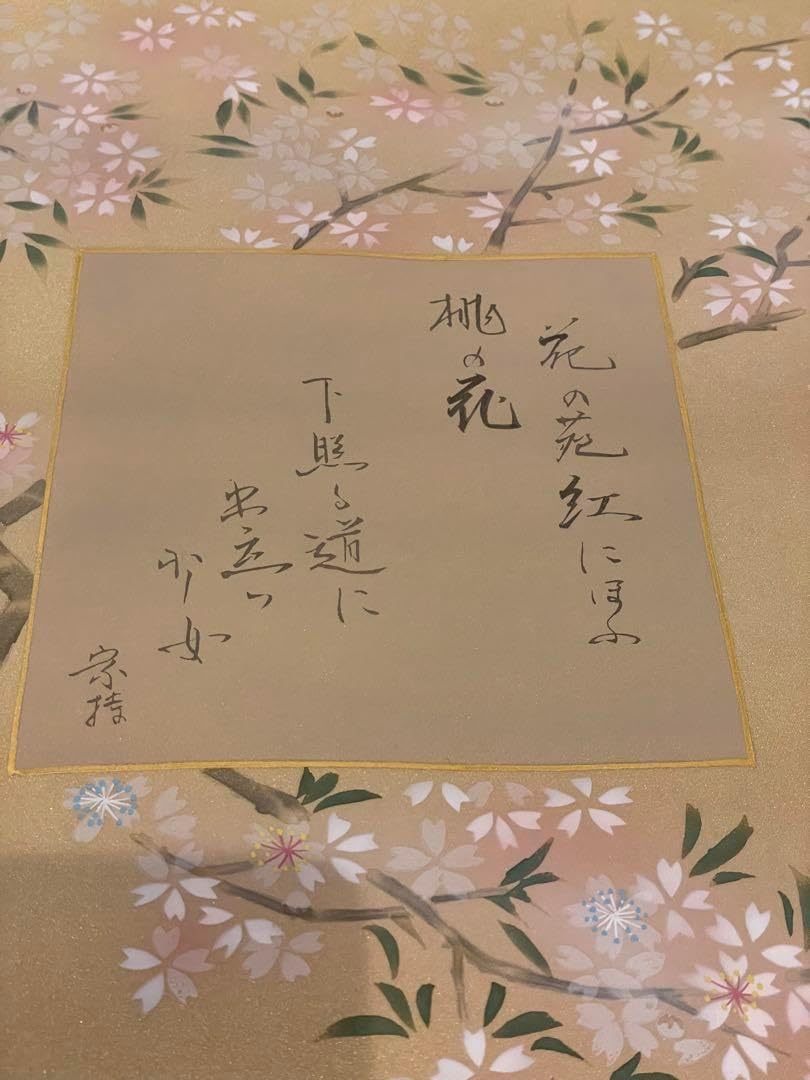 花の苑紅にほふ
桃の花
下照る道に
出立つ
少女
家持